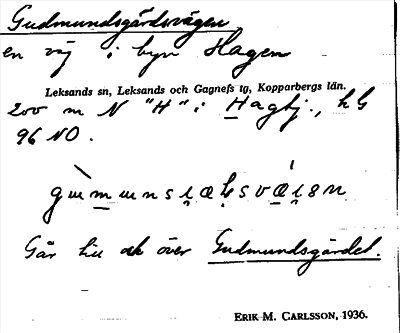 Gudmundsgårdsvägen
en väg i byn Hagen
Leksands sn, Leksands och Gagnefs tg, Kopparbergs län.
200 m N "H" i Hagbj., h G
96 NO.
Går till och över Gudmundsgärdet.
ERIK M. CARLSSON, 1936.